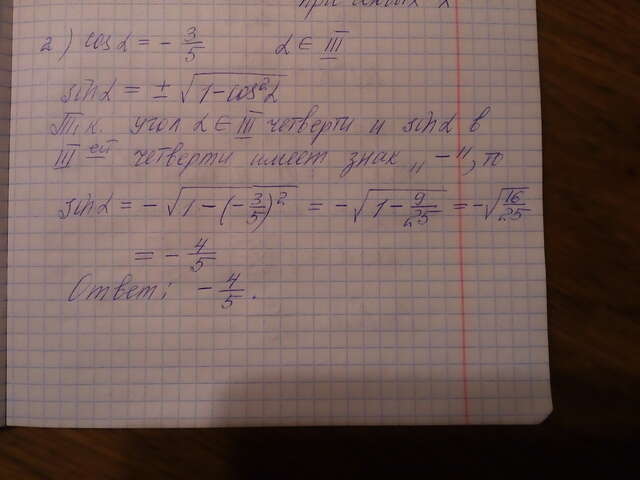 при любых α
2) cos α = - 3/5 α ∈ III
sin α = ± √(1-cos²α)
Т.к. угол α ∈ III четверти и sin α в
III ей четверти имеет знак „-", то
sin α = - √(1-(-3/5)²) = -√(1-9/25) = -√(16/25)
= - 4/5
Ответ: - 4/5.